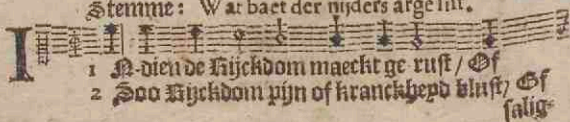 Stemme: Wat baet der nijders arge list.
I
1 N-dien de Rijckdom maeckt ge-rust / Of
2 Soo Rijckdom pijn of kranckheyd blust / Of
salig-